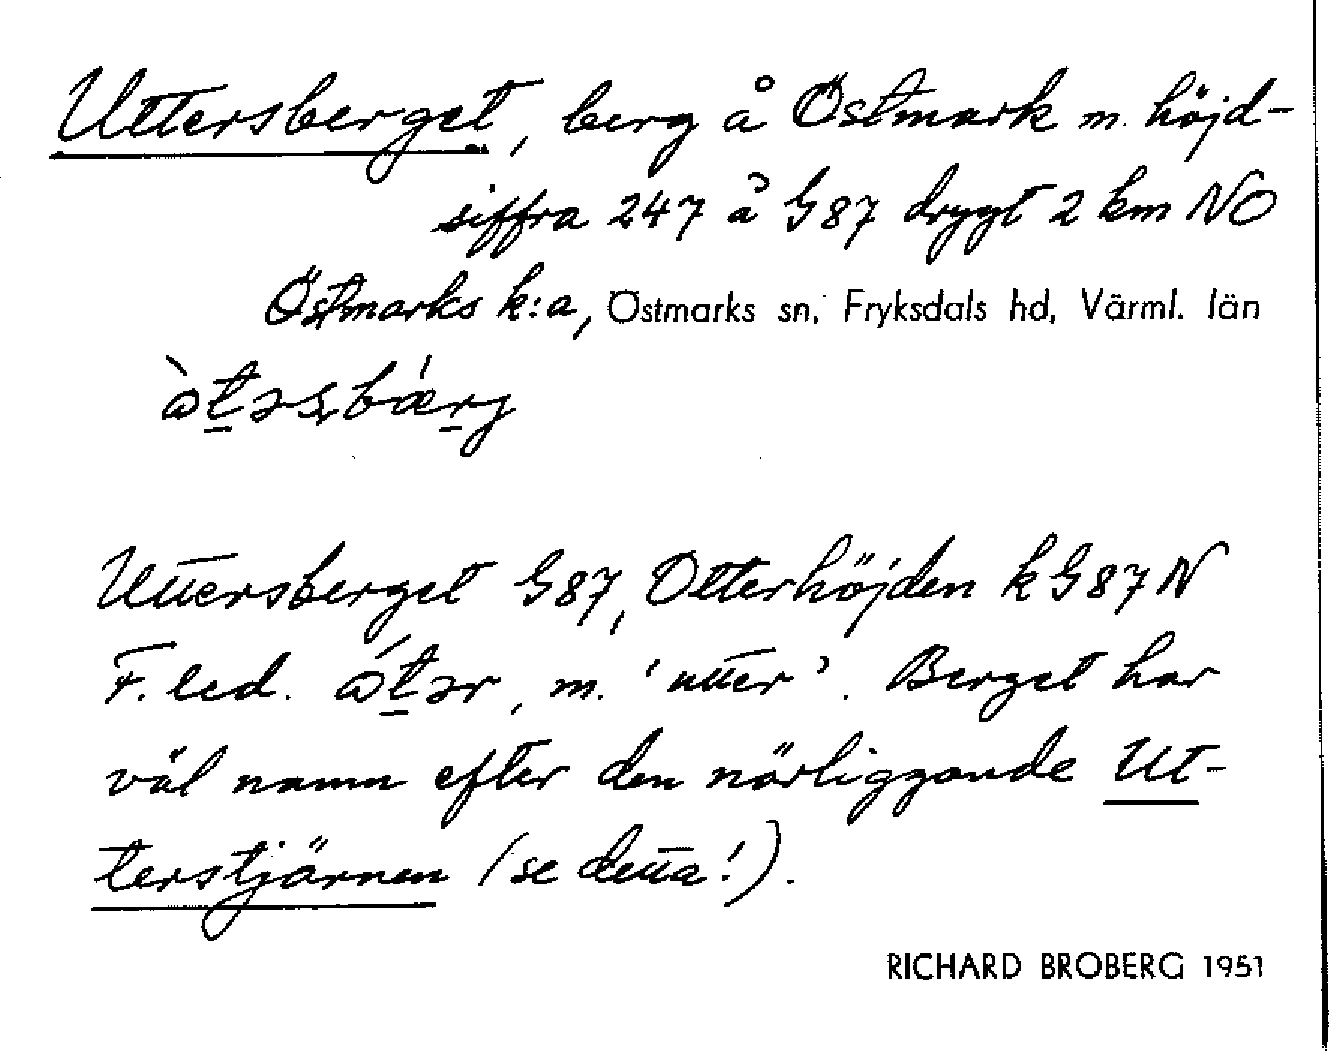 Uttersberget, berg å Östmark m. höjd-
siffra 247 å G87 drygt 2 km NO
Östmarks k:a, Östmarks sn, Fryksdals hd, Värml. län
Uttersberget G87, Otterhöjden k G87 N
F. led. , m. 'utter'. Berget har
väl namn efter den närliggande Ut-
terstjärnen (se detta!).
RICHARD BROBERG 1951